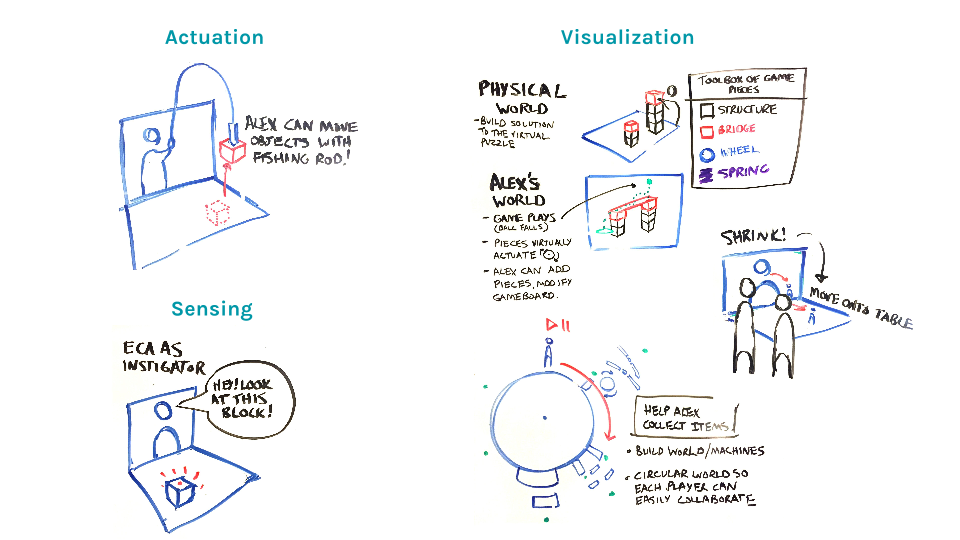 Actuation
ALEX CAN MOVE
OBJECTS WITH
FISHING ROD!
Sensing
ECA AS
INSTIGATOR
HEY! LOOK
AT THIS
BLOCK!
Visualization
PHYSICAL
WORLD
- BUILD SOLUTION
TO THE VIRTUAL
PUZZLE
TOOLBOX OF GAME
PIECES
STRUCTURE
BRIDGE
WHEEL
SPRING
ALEX'S
WORLD
- GAME PLAYS
(BALL FALLS)
- PIECES VIRTUALLY
ACTUATE
- ALEX CAN ADD
PIECES, MODIFY
GAMEBOARD.
SHRINK!
MOVE ONTO TABLE
HELP ALEX
COLLECT ITEMS!
• BUILD WORLD/MACHINES
• CIRCULAR WORLD SO
EACH PLAYER CAN
EASILY COLLABORATE